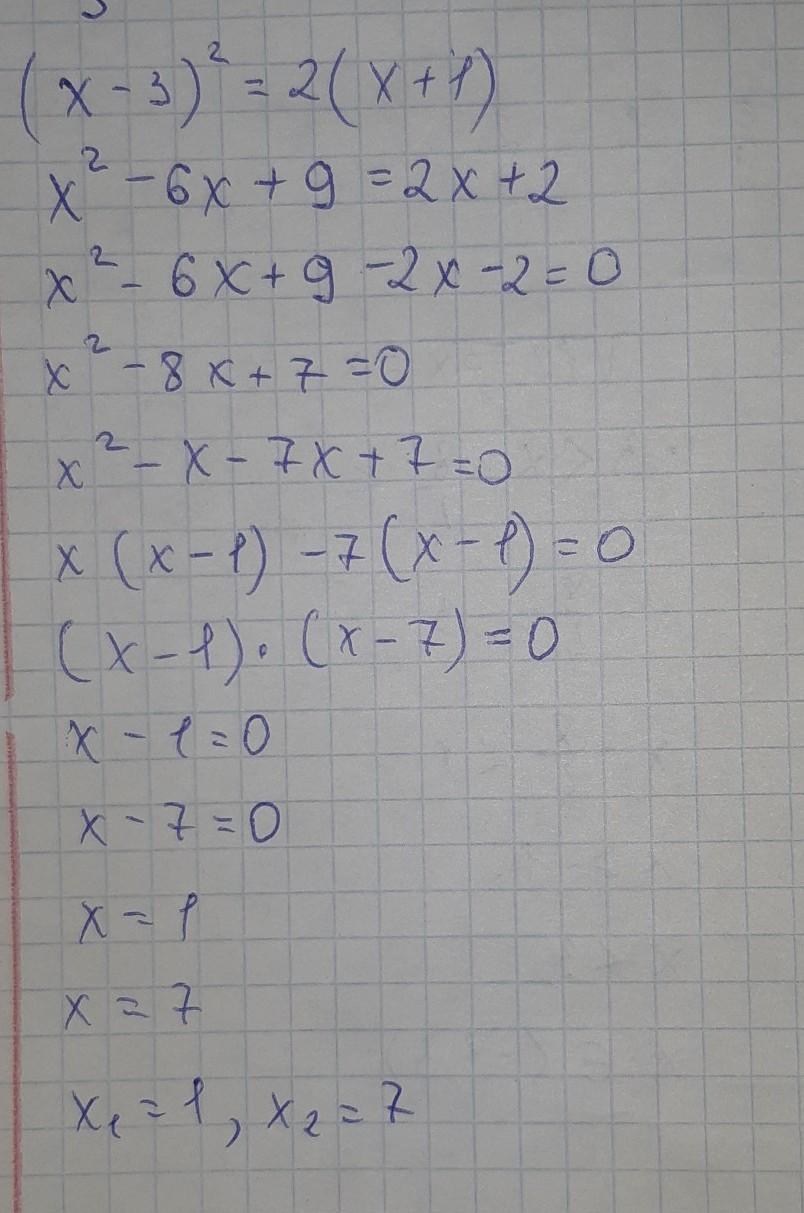 (x-3)² = 2(x+1)
x² - 6x + 9 = 2x + 2
x² - 6x + 9 - 2x - 2 = 0
x² - 8x + 7 = 0
x² - x - 7x + 7 = 0
x(x-1) - 7(x-1) = 0
(x-1)·(x-7) = 0
x - 1 = 0
x - 7 = 0
x = 1
x = 7
x₁ = 1, x₂ = 7